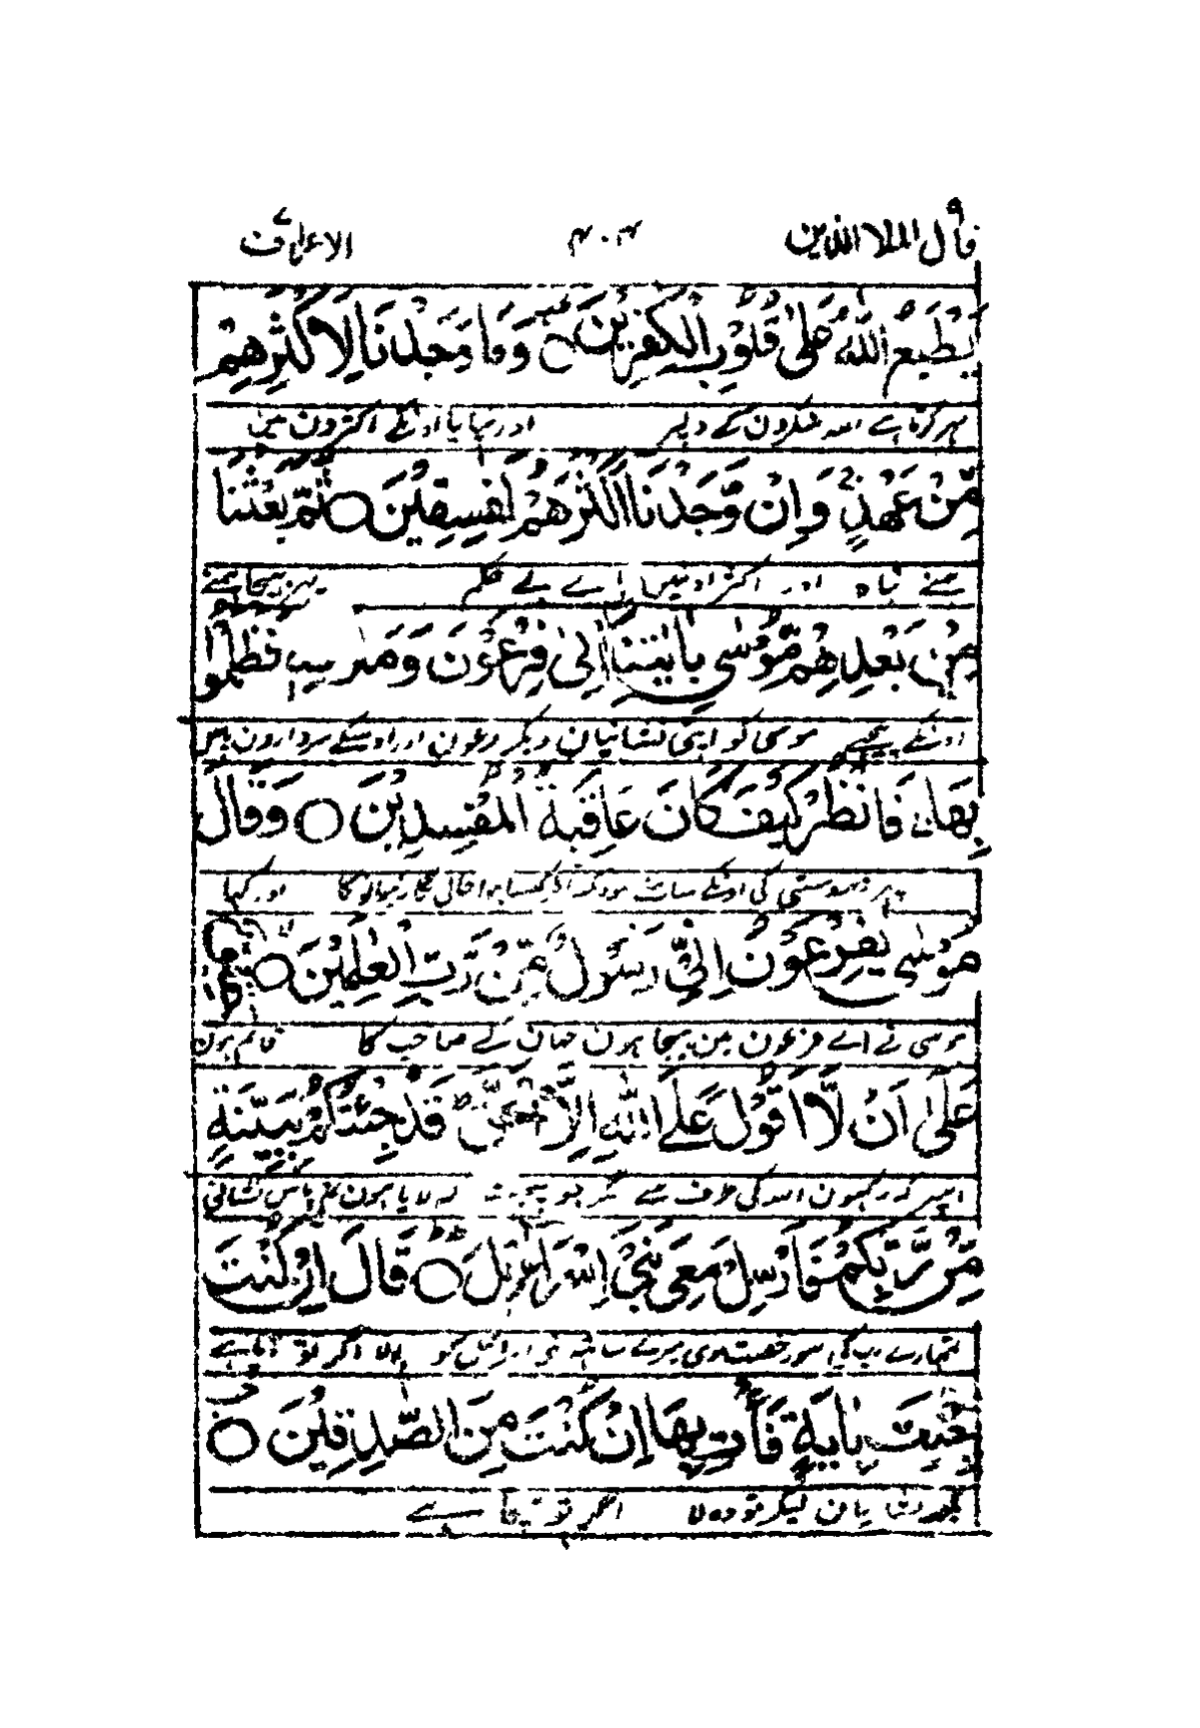 قال الملا الذين ۹ ۳۰۴ الاعراف ۷
يَطْبَعُ اللّٰهُ عَلٰى قُلُوْبِ الْكٰفِرِيْنَ وَمَا وَجَدْنَا لِاَكْثَرِهِمْ
مہر کرتا ہے اللہ منکرون کے دلپر اور نپایا اونکے اکثرون مین
مِّنْ عَهْدٍ وَاِنْ وَّجَدْنَا اَكْثَرَهُمْ لَفٰسِقِيْنَ ○ ثُمَّ بَعَثْنَا
ہمنے نباہ اور اکثر اونمین پائے بے حکم پہر بہیجا ہمنے
مِنْ بَعْدِهِمْ مُّوْسٰى بِاٰيٰتِنَا اِلٰى فِرْعَوْنَ وَمَلَا۟ئِهٖ فَظَلَمُوْا
اونکے پیچہے موسی کو اپنی نشانیان دیکر فرعون اور اوسکے سردارون پاس
بِهَا فَانْظُرْ كَيْفَ كَانَ عَاقِبَةُ الْمُفْسِدِيْنَ ○ وَقَالَ
پہر زبردستی کی اونکے سامنے سو دیکہ آخر کیسا ہوا حال بگاڑنیوالونکا اور کہا
مُوْسٰى يٰفِرْعَوْنُ اِنِّيْ رَسُوْلٌ مِّنْ رَّبِّ الْعٰلَمِيْنَ ○ حَقِيْقٌ
موسی نے اے فرعون مین بہیجا ہون جہان کے صاحب کا قائم ہون
عَلٰٓى اَنْ لَّاۤ اَقُوْلَ عَلَى اللّٰهِ اِلَّا الْحَقَّ قَدْ جِئْتُكُمْ بِبَيِّنَةٍ
اسپر کہ نہ کہون اللہ کی طرف سے مگر جو سچ ہے کہ لایا ہون تم پاس نشانی
مِّنْ رَّبِّكُمْ فَاَرْسِلْ مَعِيَ بَنِيْٓ اِسْرَآءِيْلَ ○ قَالَ اِنْ كُنْتَ
تمہارے رب کی سو رخصت دی میرے ساتہ بنی اسرائیل کو بولا اگر تو آیا ہے
جِئْتَ بِاٰيَةٍ فَاْتِ بِهَاۤ اِنْ كُنْتَ مِنَ الصّٰدِقِيْنَ ○
کچہ نشان لیکر تو وہ لا اگر تو سچا ہے